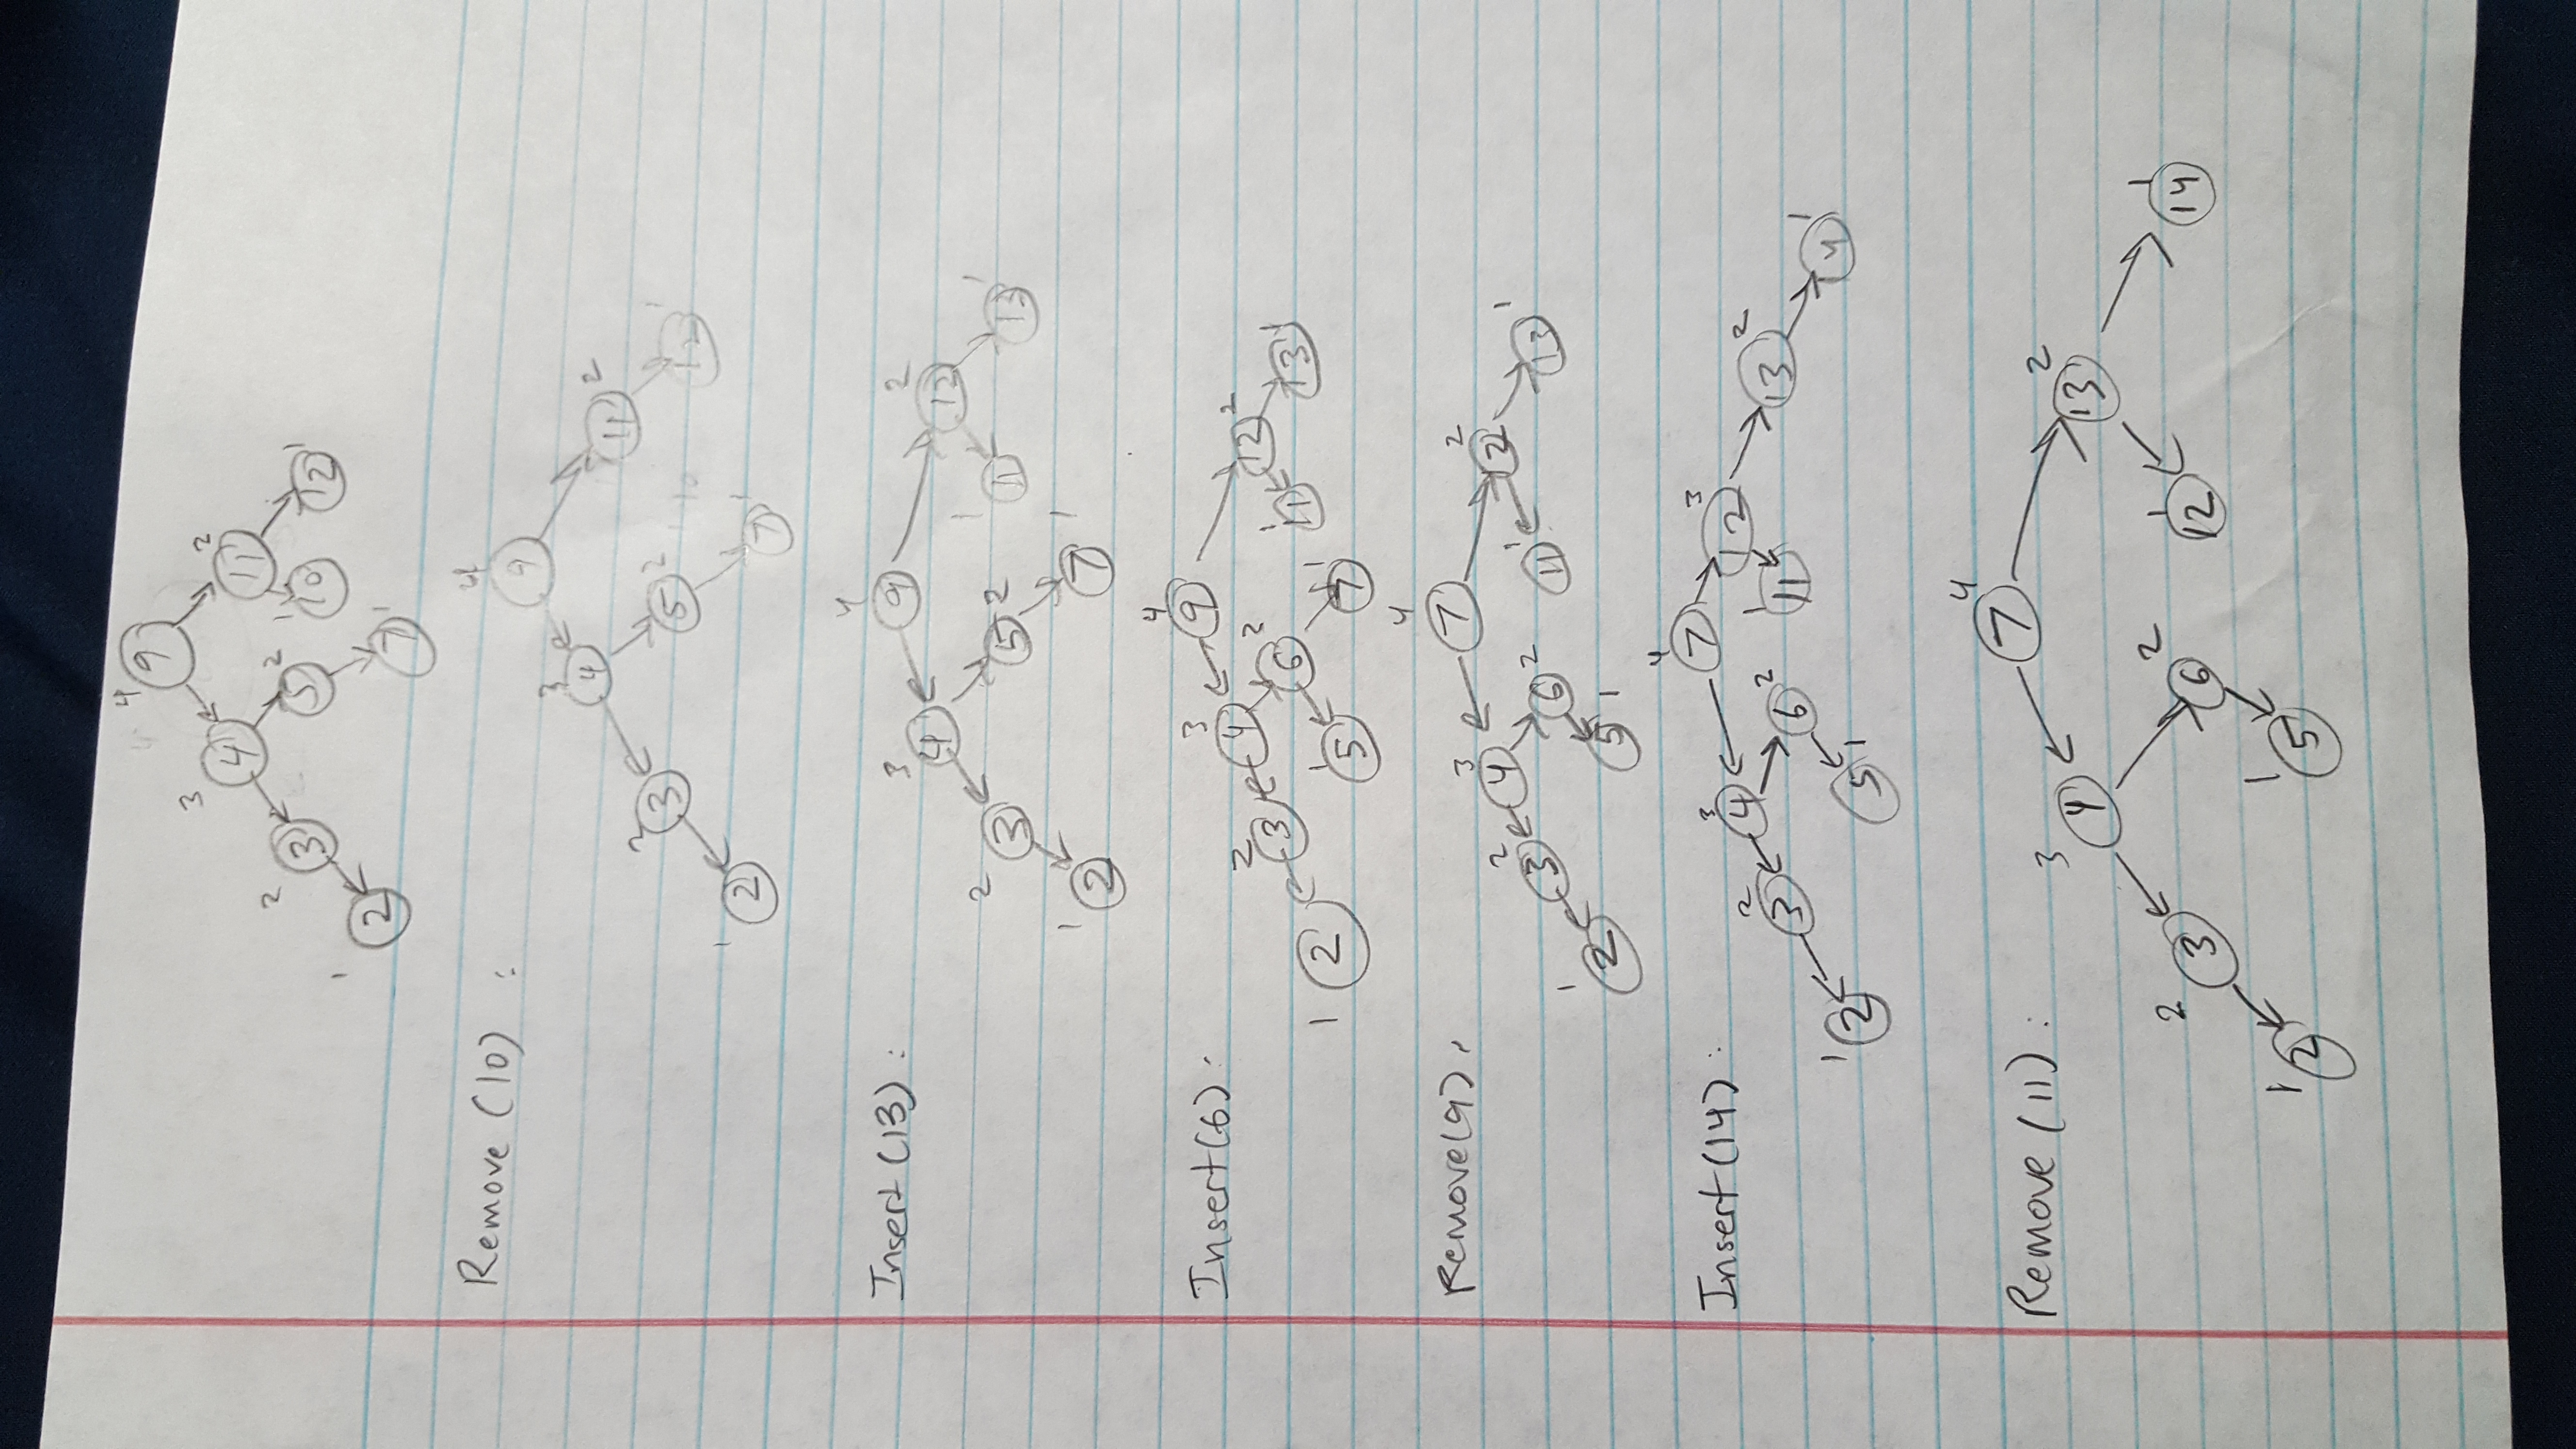 4
9
3 2
4 11
2 2
3 5 1 10 12 1
1
2 7 1
Remove (10) :
4
9
3
4 11 2
2
3 5 2 12 1
1
2 7 1
Insert (13) :
4
9
3 2
4 12
2 1 1
3 5 2 11 13
1 1
2 7
Insert (6) :
4
9
3
4 12 2
2
3 6 2 1 11 13 1
1 2 1 5 7 1
Remove(9) :
4
7
3 2
4 12
2
3 6 2 11 1 13 1
1
2 5 1
Insert (14) :
4
7
3 3
4 12
2
3 6 2 1 11 13 2
1
2 5 1 14 1
Remove (11) :
4
7
3 2
4 13
2 2 1 1
3 6 12 14
1 1
2 5